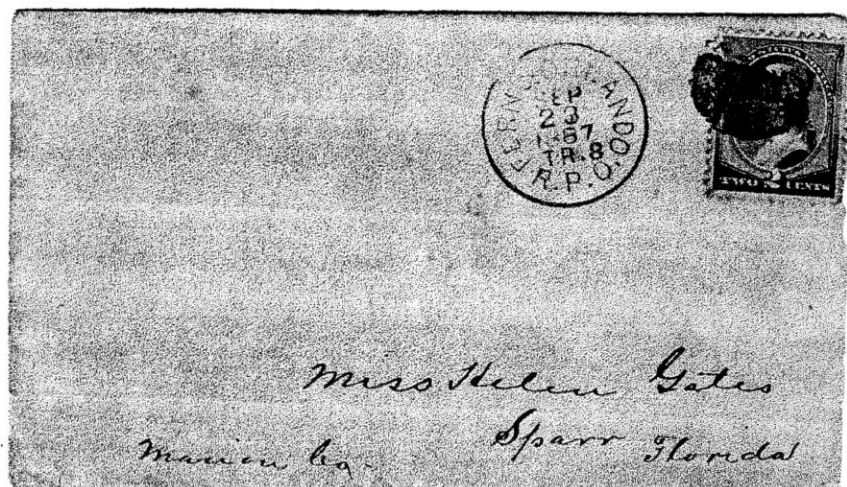 FERN. & ORLANDO
R.P.O.
SEP
23
1887
TR.8
TWO 2 CENTS
Miss Helen Gates
Sparr Florida
Marion Co.